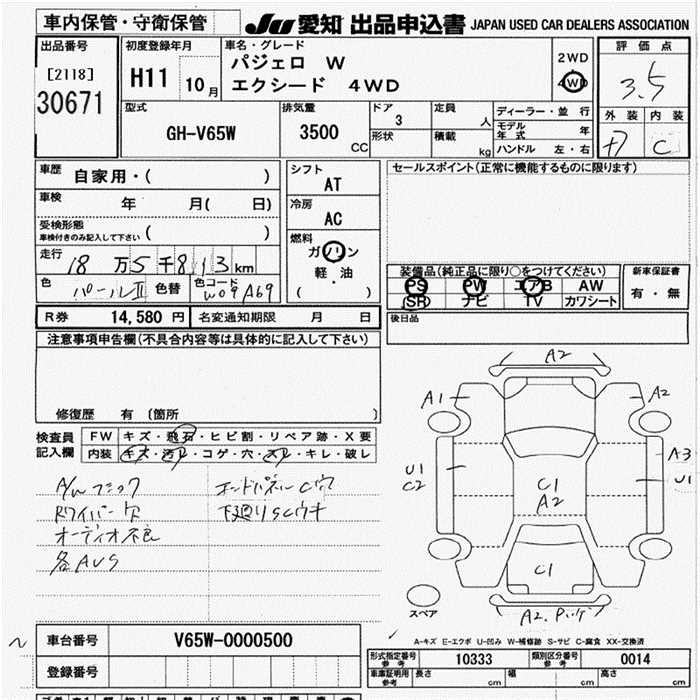 車内保管・守衛保管
JU 愛知 出品申込書 JAPAN USED CAR DEALERS ASSOCIATION
出品番号
[2118]
30671
初度登録年月
H11 10月
車名・グレード
パジェロ W
エクシード 4WD
2WD
4WD
評価点
3.5
外装 内装
+7 C
型式
GH-V65W
排気量
3500
CC
ドア
3
形状
定員
人
積載
kg
ディーラー・並行
モデル年式 年
ハンドル 左・右
車歴
自家用・( )
車検
年 月( 日)
受検形態
車検付きのみ記入して下さい ( )
走行
18万5千813km
色
パールⅡ 色替
色コード
W09 A69
シフト
AT
冷房
AC
燃料
ガソリン
軽・油
( )
セールスポイント(正常に機能するものに限ります)
装備品(純正品に限り○をつけてください)
PS PW エアB AW
SR ナビ TV カワシート
新車保証書
有・無
R券 14,580円 名変通知期限 月 日
後日品
注意事項申告欄(不具合内容等は具体的に記入して下さい)
修復歴 有 〔箇所 〕
検査員
記入欄
FW キズ・飛石・ヒビ割・リペア跡・X要
内装 キズ・汚れ・コゲ・穴・スレ・キレ・破レ
Rワイパー欠
オーディオ不良
各AUS
ボードパネルC穴
下廻りSCウキ
A2
A1
A2
A3
U1
C2
U1
C1
A2
C1
A2.
スペア
A-キズ E-エクボ U-凹み W-補修跡 S-サビ C-腐食 XX-交換済
車台番号 V65W-0000500
登録番号
形式指定番号
参考
10333
類別区分番号
参考
0014
車庫証明用
参考
長さ cm 幅 cm 高さ cm